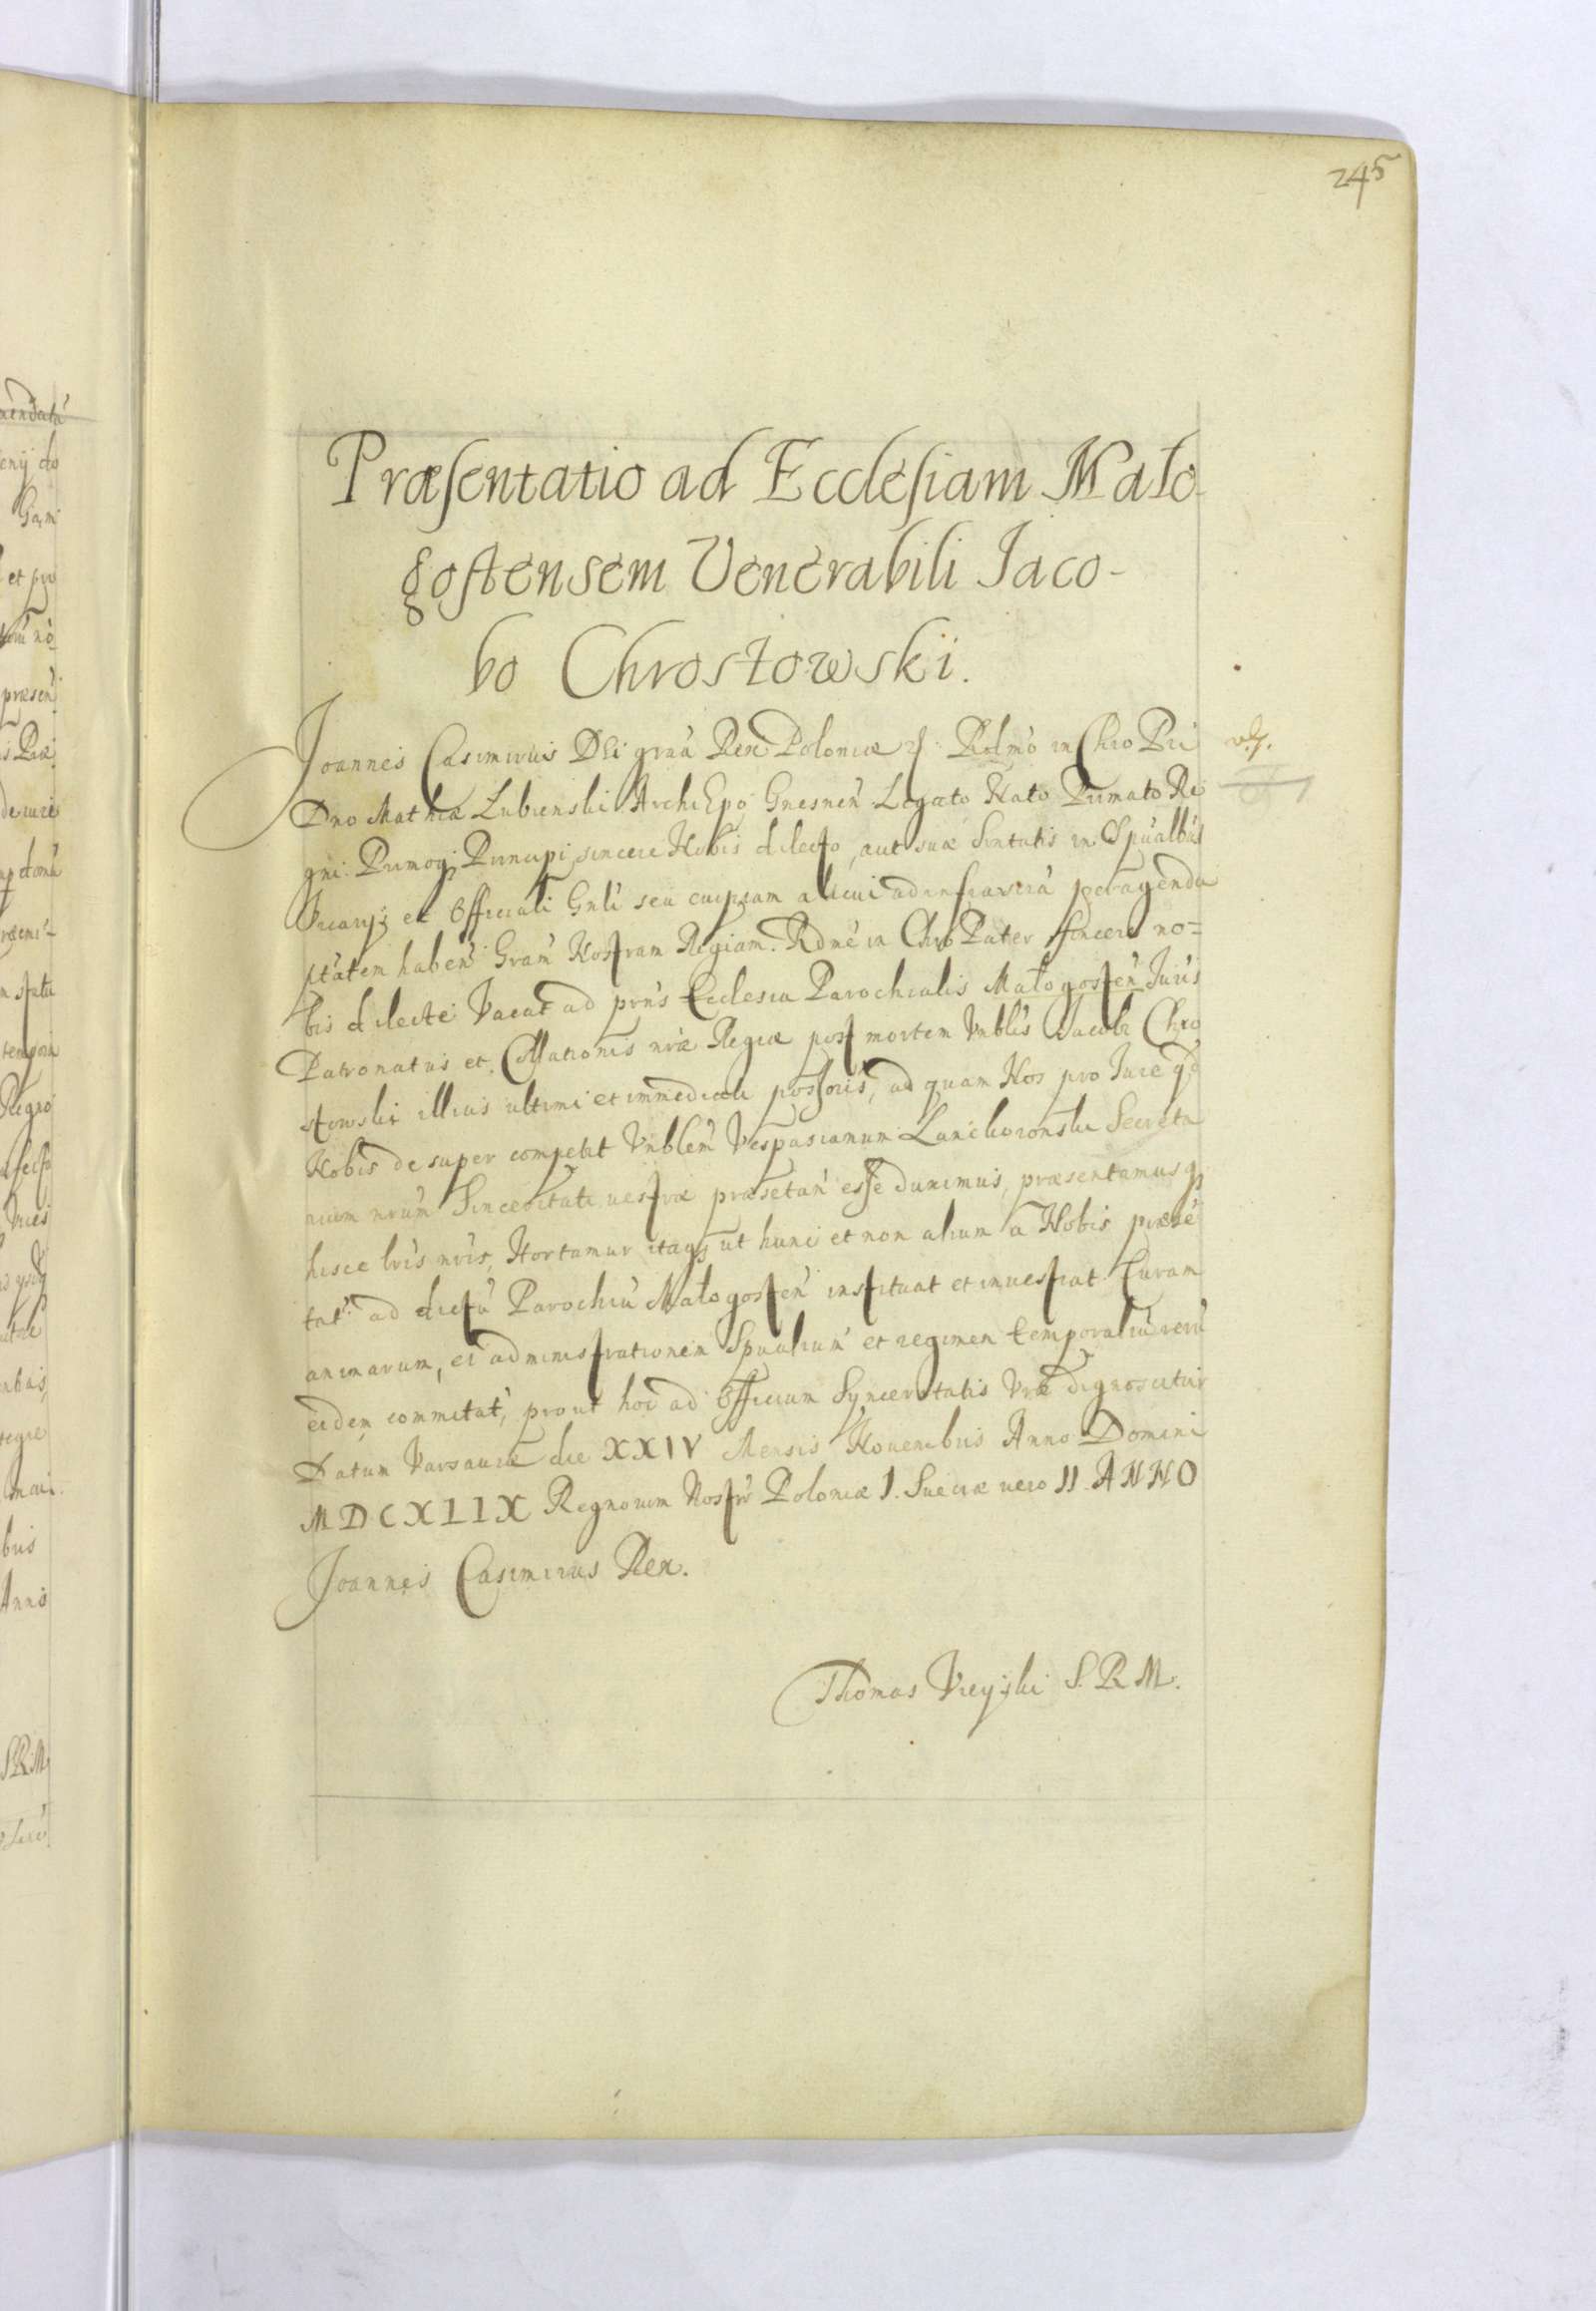 245
Præsentatio ad Ecclesiam Mało-
gostensem Venerabili Jaco-
bo Chrostowski.
Joannes Casimirus Dei grãa Rex Poloniæ Rdmo in Chro Pri
Dno Mathiæ Lubienski ArchiEpo Gnesnen Legato Nato Primato Re
gni Primoq; Principi, sincere Nobis dilecto, aut suæ Sinctatis in Spualbus
Vicarijs et Officiali Gnli seu cuipiam alicui ad infrascrã peragenda
ptatem haben Gram Nostram Regiam. Rdme in Chro Pater sincere no=
bis dilecte Vacat ad prns Ecclesia Parochialis Małogosten Juris
Patronatus et Collationis nræ Regiæ post mortem Vnblis Jacobi Chro
stowski illius ultimi et immediati possoris, ad quam Nos pro Jure qd
Nobis desuper competit Vnblem Vespasianum Lanckoronski Secreta
rium nrum Sinceritati uestræ præsetan esse duximus, præsentamusq;
hisce lris nris, Hortamur itaq; ut hunc et non alium a Nobis præse
tat ad dictu Parochiu Małogosten instituat et inuestiat Curam
animarum, et administrationem Spualium et regimen temporaliu reru
eidem committat, prout hoc ad Officium Synceritatis Vræ dignoscitur
Datum Varsauiæ die XXIV Mensis Nouembris Anno Domini
MDCXLIX Regnorum Nostr Poloniæ I. Sueciæ uero II. ANNO
Joannes Casimirus Rex.
Thomas Vieyski S.R.M.